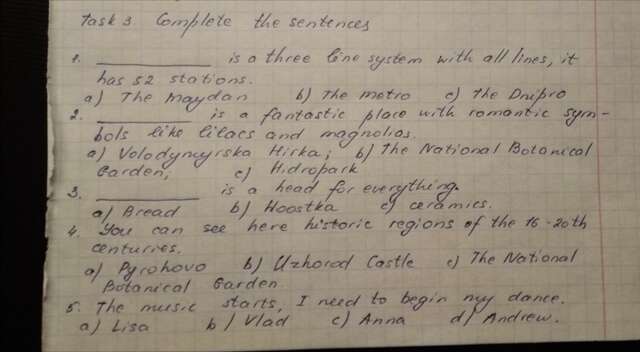 Task 3 Complete the sentences
1. __________ is a three line system with all lines, it
has 52 stations.
a) The Maydan b) The metro c) The Dnipro
2. __________ is a fantastic place with romantic sym-
bols like lilacs and magnolias.
a) Volodymyrska Hirka; b) The National Botanical
Garden; c) Hidropark
3. __________ is a head for everything.
a) Bread b) Hoostka c) ceramics.
4. You can see here historic regions of the 16-20th
centuries.
a) Pyrohovo b) Uzhorod Castle c) The National
Botanical Garden
5. The music starts, I need to begin my dance.
a) Lisa b) Vlad c) Anna d) Andrew.